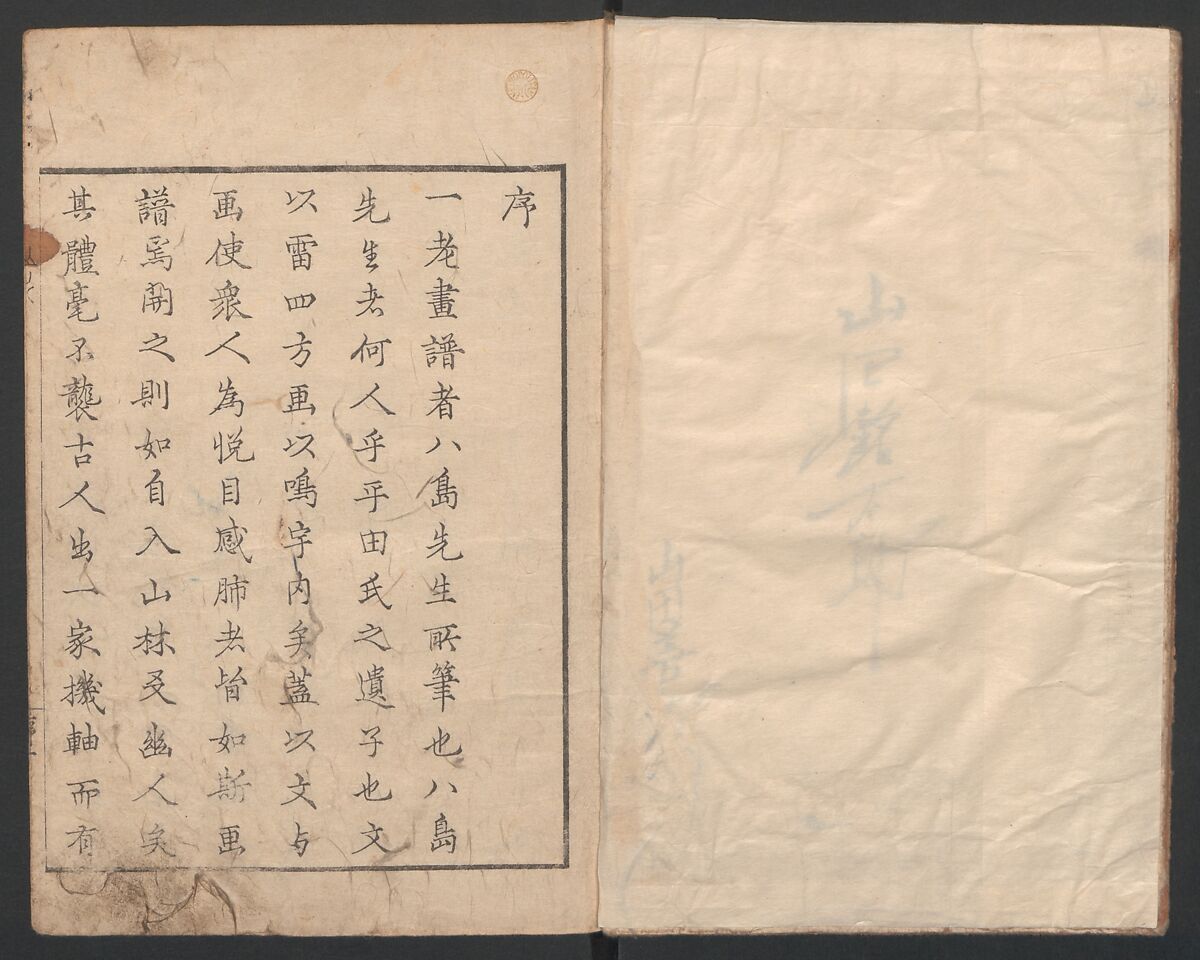 序
一老畫譜者八島先生所筆也八島
先生者何人乎平田氏之遺子也文
以雷四方画以鳴宇内矣蓋以文与
画使衆人為悦目感肺者皆如斯画
譜焉開之則如自入山林叉幽人矣
其體毫不襲古人出一家機軸而有